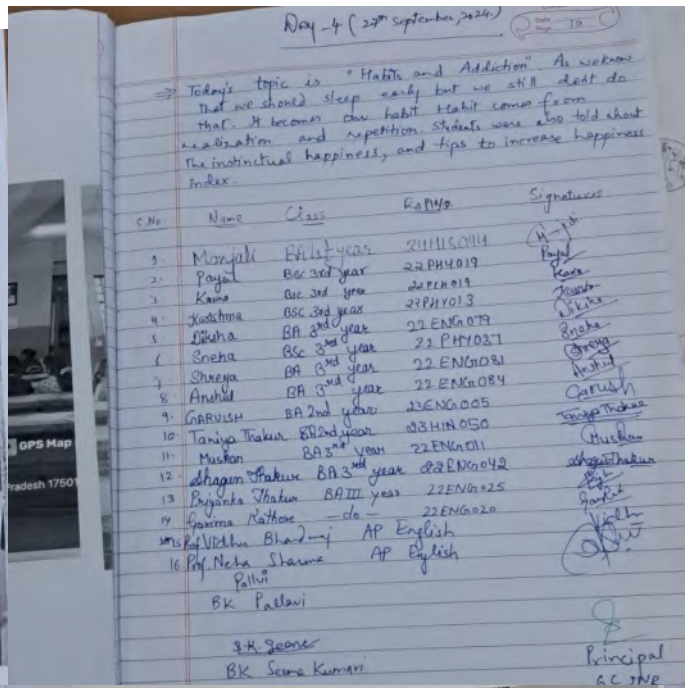 Day - 4 (27th September, 2024.)
Date
Page 10
⇒ Today's topic is "Habits and Addiction". As we know
that we should sleep early but we still dont do
that. It becomes our habit Habit comes from
realization and repetition. Students were also told about
the instinctual happiness, and tips to increase happiness
index.
S.No. Name Class Roll No Signatures
1. Monjali BA 1st year 24HIS094
2. Payal BSC 3rd year 22PHY019 Payal
3 Karina BSC 3rd year 22PHY019
4. Karishma BSC 3rd year 22PHY013
5 Diksha BA 3rd year 22ENG079 Diksha
6 Sneha BSc 3rd year 22PHY037 Sneha
7 Shreya BA 3rd year 22ENG081 Shreya
8. Anshul BA 3rd year 22ENG084 Anshul
9. GARVISH BA 2nd year 23ENG005 Garvish
10. Taniya Thakur BA 2nd year 23HIN050 Taniya Thakur
11. Muskan BA 3rd year 22ENG011 Muskan
12. Shagun Thakur BA 3rd year 22ENG042 Shagun Thakur
13 Priyanka Thakur BA III year 22ENG025
14 Garima Rathore —do— 22ENG020
15 Prof Vidhu Bhardwaj AP English Vidhu
16 Prof. Neha Sharma AP English
Pallvi
BK Pallavi
BK Seema Kumari
Principal
GC JNR
GPS Map
Pradesh 17501